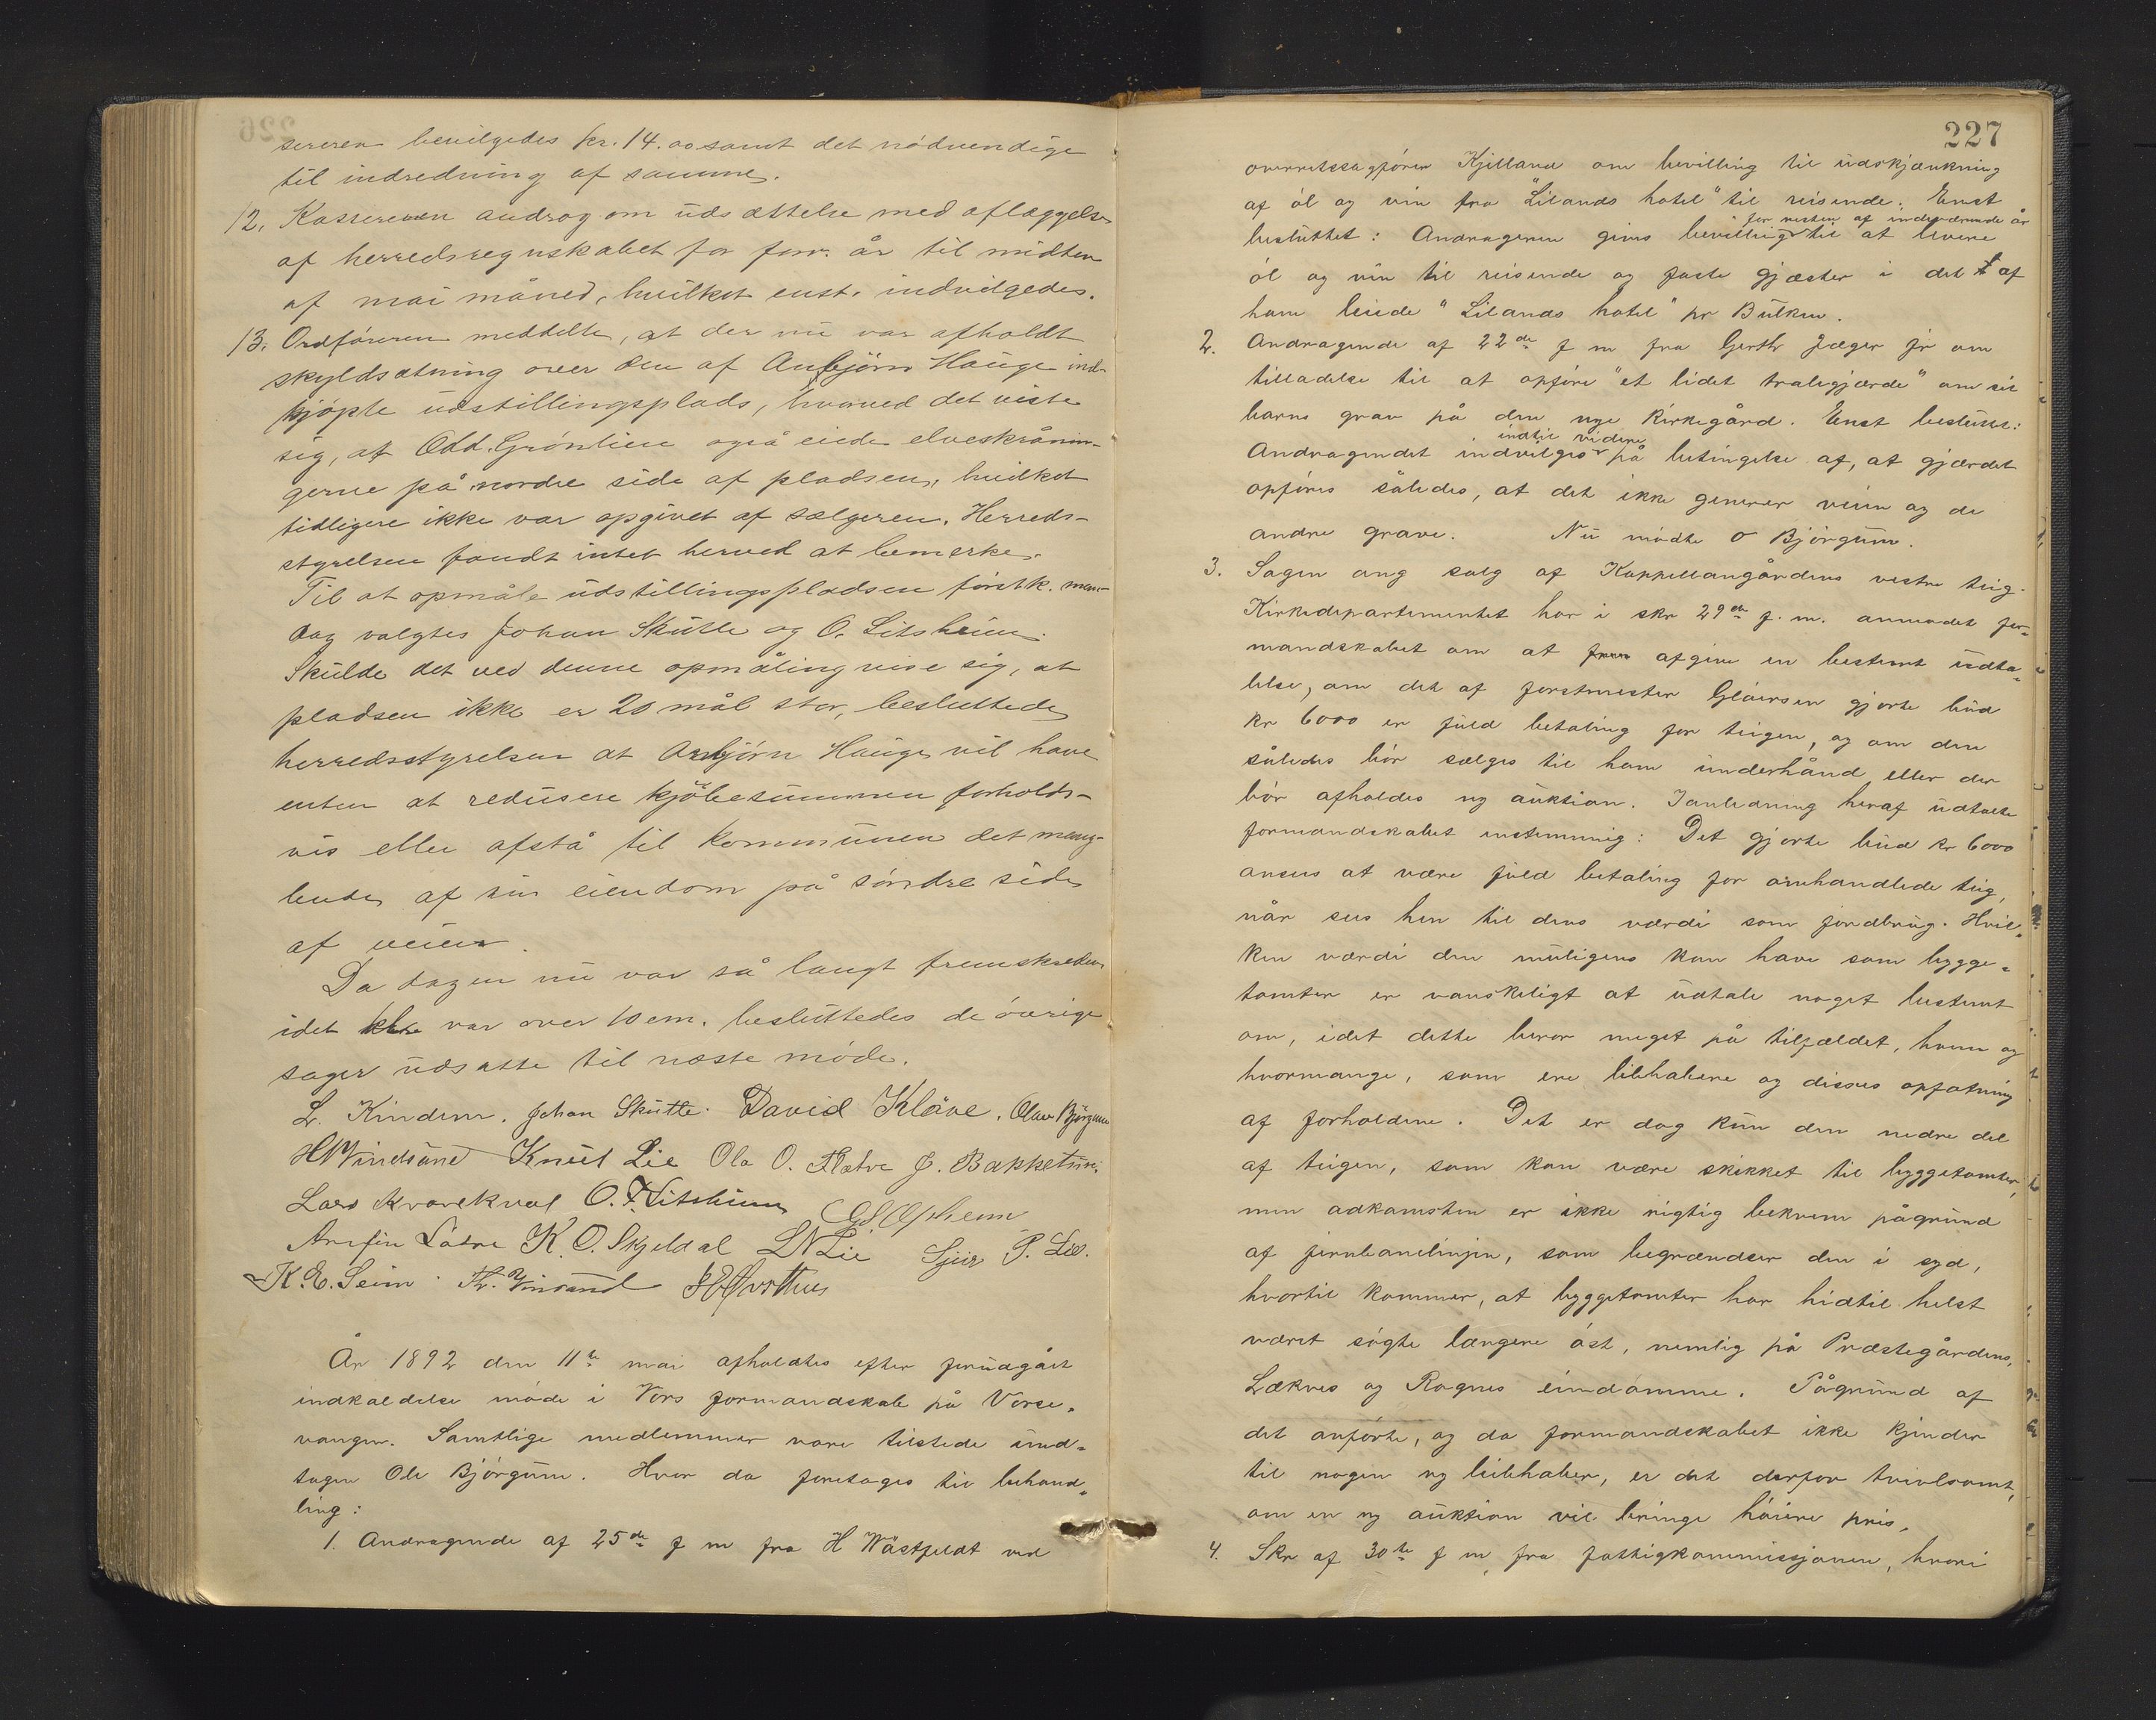 sereren bevilgedes kr. 14.00 samt det nödvendige
til indredning af samme.
12. Kassereren androg om udsættelse med aflæggelse
af herredsregnskabet for forr. år til midten
af mai måned, hvilket enst. indvilgedes.
13. Ordföreren meddelte, at der nu var afholdt
skyldsætning over den af Anbjörn Hauge ind-
kjöpte udstillingsplads, hvorved det viste
sig, at Odd. Grönlien også eiede elveskrånin-
gerne på nordre side af pladsen, hvilket
tidligere ikke var opgivet af sælgeren. Herreds-
styrelsen fandt intet herved at bemerke.
Til at opmåle udstillingspladsen förstk. man-
dag valgtes Johan Skutle og O. Litsheim.
Skulde det ved denne opmåling vise sig, at
pladsen ikke er 20 mål stor, besluttede
herredsstyrelsen at Anbjörn Hauge vil have
enten at redusere kjöbesummen forholds-
vis eller afstå til kommunen det mang-
lende af sin eiendom på söndre side
af veien.
Da dagen nu var så langt fremskreden
idet kl. var over 10 em. besluttedes de övrige
sager udsatte til næste möde.
L. Kindem. Johan Skutle. David Klöve. Olav Björgum
Knut Lie Ola O. Flatre J. Bakketun.
Lars Kvarekval O. T. Litsheim G. S. Opheim
Arnfin Låtre K. O. Skjeldal L N Lie Sjur P. Lid.
K. E. Seim Th. Vinsand
År 1892 den 11te mai afholdtes efter forudgået
indkaldelse möde i Vors formandskab på Vorse-
vangen. Samtlige medlemmer vare tilstede und-
tagen Ole Björgum. Hvor da foretoges til behand-
ling:
1. Andragende af 25de f m fra H Wästfeldt ved
227
overretssagförer Kjelland om bevilling til udskjænkning
af öl og vin fra "Lilands hotel" til reisende. Enst
for resten af indeværende år
besluttet: Andrageren gives bevilling til at levere
öl og vin til reisende og faste gjæster i det af
ham leiede "Lilands hotel" pr Bulken.
2. Andragende af 22de f m fra Gerth Jæger jr om
tilladelse til at opföre "et lidet traligjærde" om sit
barns grav på den nye kirkegård. Enst besluttet:
indtil videre
Andragendet indvilges på betingelse af, at gjærdet
opföres således, at det ikke generer veien og de
andre grave. Nu mödte O Björgum.
3. Sagen ang salg af Kappellangårdens vestre teig.
Kirkedepartementet har i skr 29de f. m. anmodet for-
mandskabet om at afgive en bestemt udta-
lelse, om det af forstmester Glöersen gjorte bud
kr 6000 er fuld betaling for teigen, og om den
således bör sælges til ham underhånd eller der
bör afholdes ny auktion. I anledning heraf udtalte
formandskabet enstemmig: Det gjorte bud kr 6000
ansees at være fuld betaling for omhandlede teig,
når sees hen til dens værdi som jordbrug. Hvil-
ken værdi den muligens kan have som bygge-
tomter er vanskeligt at udtale noget bestemt
om, idet dette beror meget på tilfældet, hvem og
hvormange, som ere liebhabere og disses opfatning
af forholdene. Det er dog kun den nedre del
af teigen, som kan være skikket til byggetomter,
men adkomsten er ikke rigtig bekvem pågrund
af jernbanelinjen, som begrændser den i syd,
hvortil kommer, at byggetomter har hidtil helst
været sögte længere öst, nemlig på Præstegårdens,
Lækves og Rognes eiendomme. Pågrund af
det anförte, og da formandskabet ikke kjender
til nogen ny liebhaber, er det derfor tvivlsomt,
om en ny auktion vil bringe höiere pris.
4. Skr af 30te f m fra fattigkommissjonen, hvori